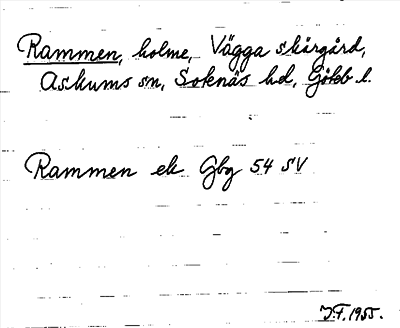 Rammen, holme, Vägga skärgård,
Askums sn, Sotenäs hd, Götеb l.
Rammen ek Gbg 54 SV
J.F. 1955.